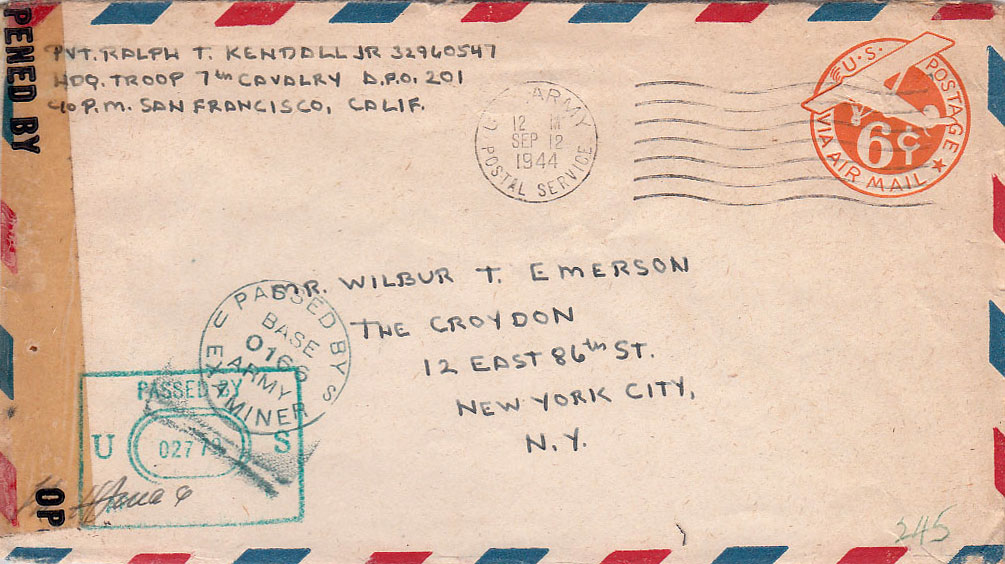 PENED BY
PVT. RALPH T. KENDALL JR 32960547
HDQ. TROOP 7th CAVALRY A.P.O. 201
c/o P.M. SAN FRANCISCO, CALIF.
U.S. ARMY
12 M
SEP 12
1944
POSTAL SERVICE
U.S. POSTAGE
6¢
VIA AIR MAIL
MR. WILBUR T. EMERSON
THE CROYDON
12 EAST 86th ST.
NEW YORK CITY,
N.Y.
PASSED BY
BASE
0166
ARMY
EXAMINER
U S
PASSED BY
U 0277 S
OP
245